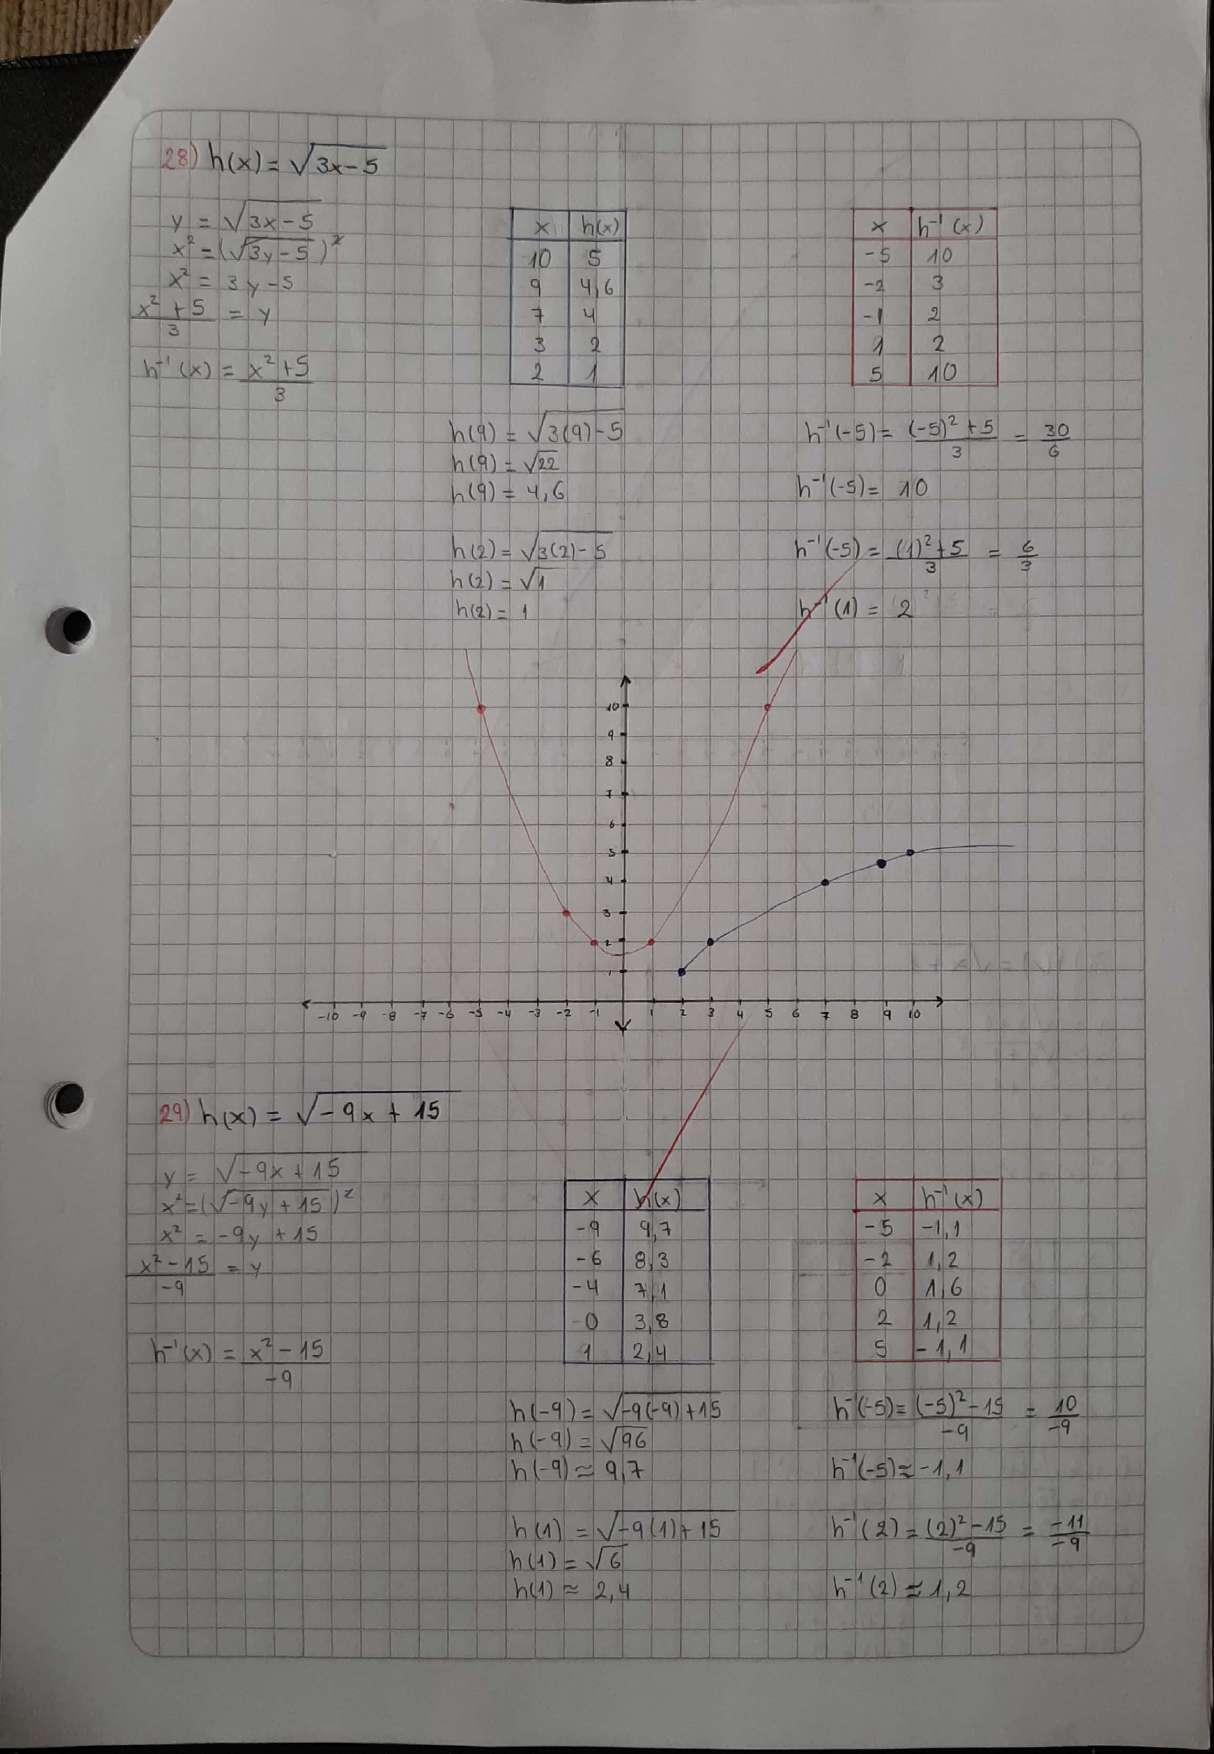 28) h(x) = √3x-5
y = √3x-5
x² = (√3y-5)²
x² = 3y-5
x²+5/3 = y
h⁻¹(x) = x²+5/3
x h(x)
10 5
9 4,6
7 4
3 2
2 1
x h⁻¹(x)
-5 10
-2 3
-1 2
1 2
5 10
h(9) = √3(9)-5
h(9) = √22
h(9) = 4,6
h(2) = √3(2)-5
h(2) = √1
h(2) = 1
h⁻¹(-5) = (-5)²+5/3 = 30/6
h⁻¹(-5) = 10
h⁻¹(-5) = (1)²+5/3 = 6/3
h⁻¹(1) = 2
10
9
8
7
6
5
4
3
2
1
-10 -9 -8 -7 -6 -5 -4 -3 -2 -1 1 2 3 4 5 6 7 8 9 10
29) h(x) = √-9x+15
y = √-9x+15
x² = (√-9y+15)²
x² = -9y+15
x²-15/-9 = y
h⁻¹(x) = x²-15/-9
x h(x)
-9 9,7
-6 8,3
-4 7,1
-0 3,8
1 2,4
x h⁻¹(x)
-5 -1,1
-2 1,2
0 1,6
2 1,2
5 -1,1
h(-9) = √-9(-9)+15
h(-9) = √96
h(-9) ≈ 9,7
h(1) = √-9(1)+15
h(1) = √6
h(1) ≈ 2,4
h⁻¹(-5) = (-5)²-15/-9 = 10/-9
h⁻¹(-5) ≈ -1,1
h⁻¹(2) = (2)²-15/-9 = -11/-9
h⁻¹(2) ≈ 1,2